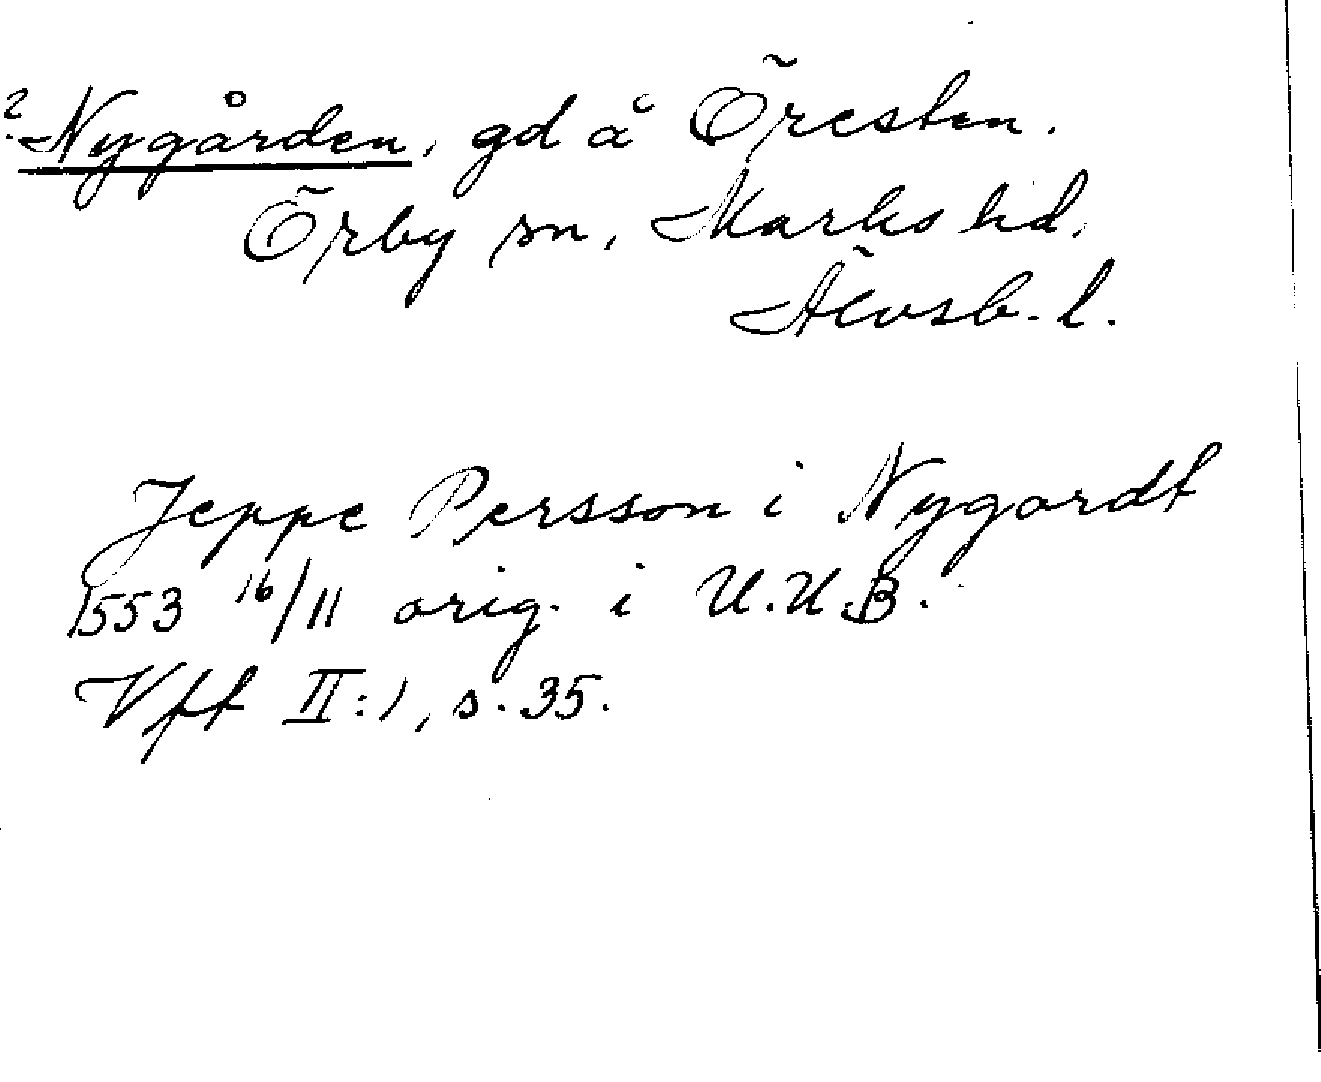 ? Nygården, gd å Öresten.
Örby sn, Marks hd,
Älvsb. l.
Jeppe Persson i Nygardt
1553 16/11 orig. i U.U.B.
Vff II:1, s. 35.